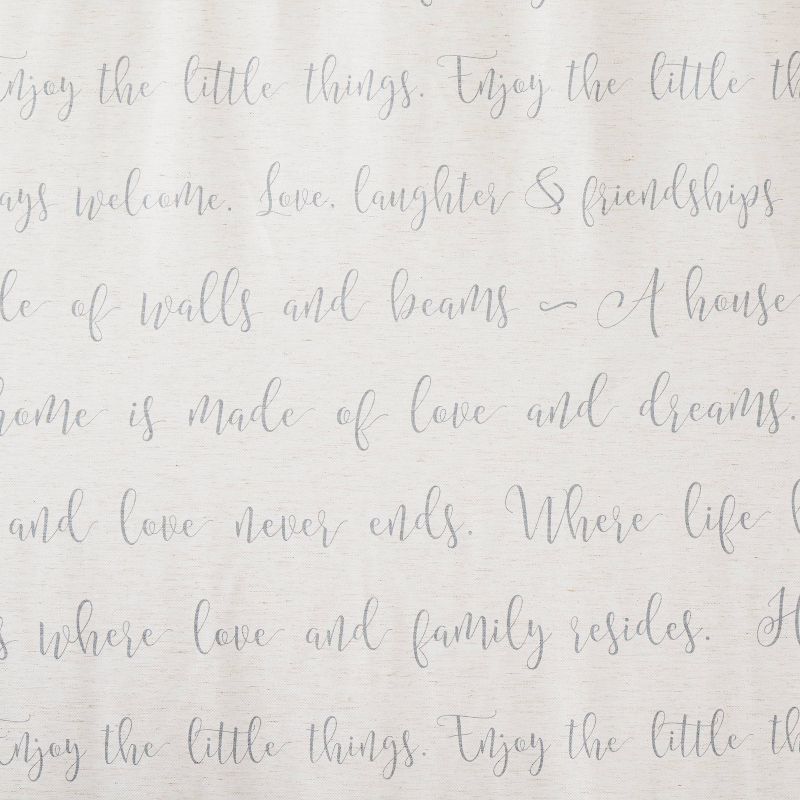 Enjoy the little things. Enjoy the little
welcome. Love, laughter & friendships
of walls and beams ~ A house
home is made of love and dreams.
and love never ends. Where life
where love and family resides.
Enjoy the little things. Enjoy the little